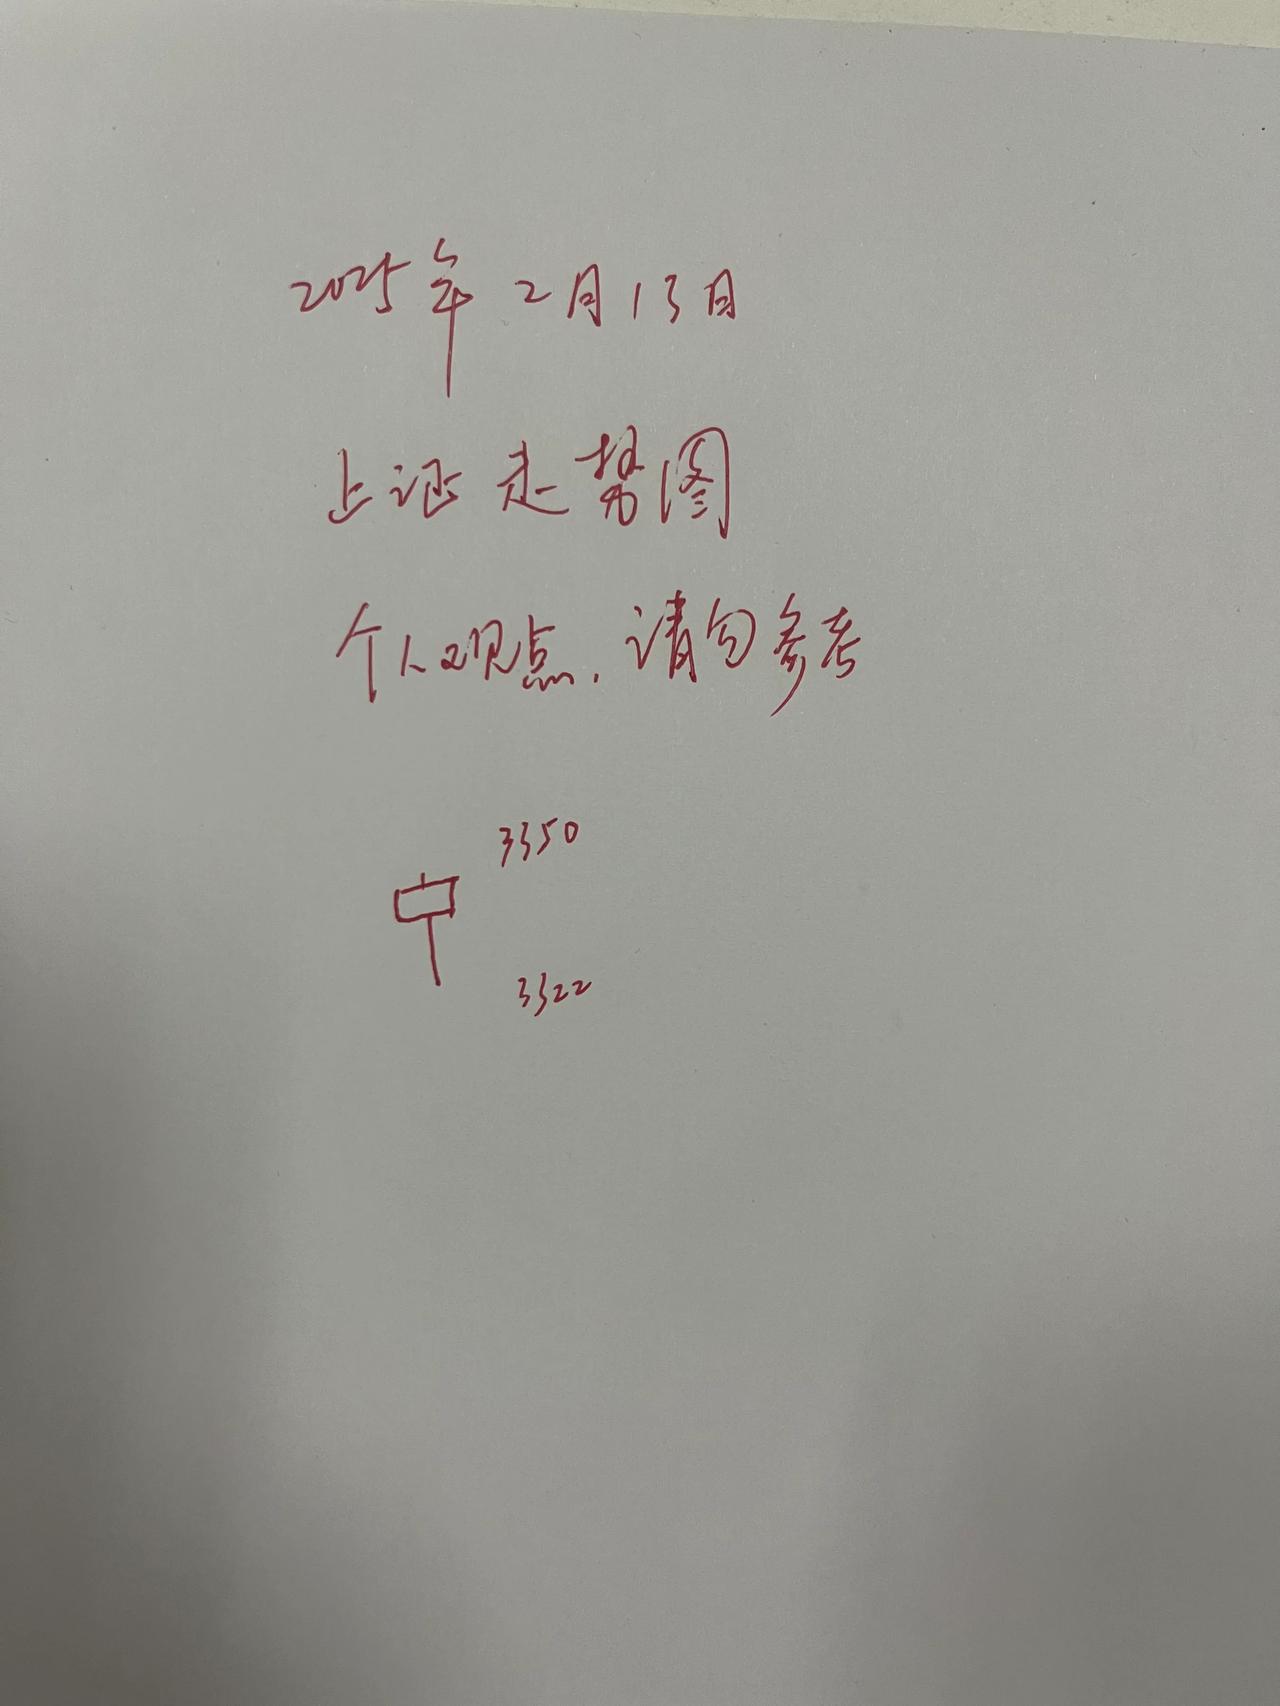 2025年2月13日
上证走势图
个人观点.请勿参考
3350
3322